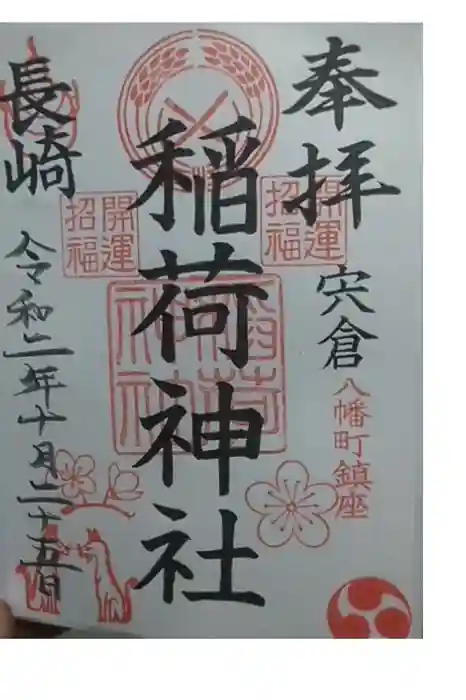 奉拝
宍倉
八幡町鎮座
開運
招福
稲荷神社
開運
招福
長崎
令和二年十月二十五日